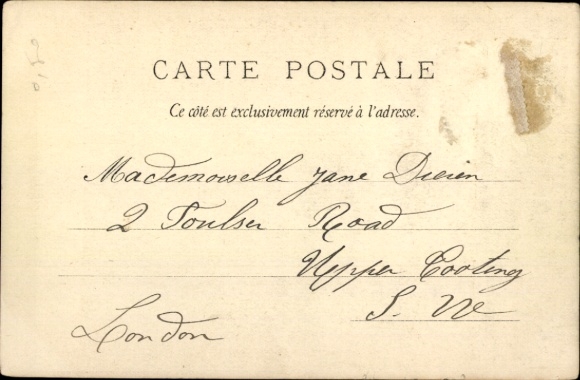 0,50
CARTE POSTALE
Ce côté est exclusivement réservé à l'adresse.
Mademoiselle Jane
2 Road
Upper Tooting
S. W
London